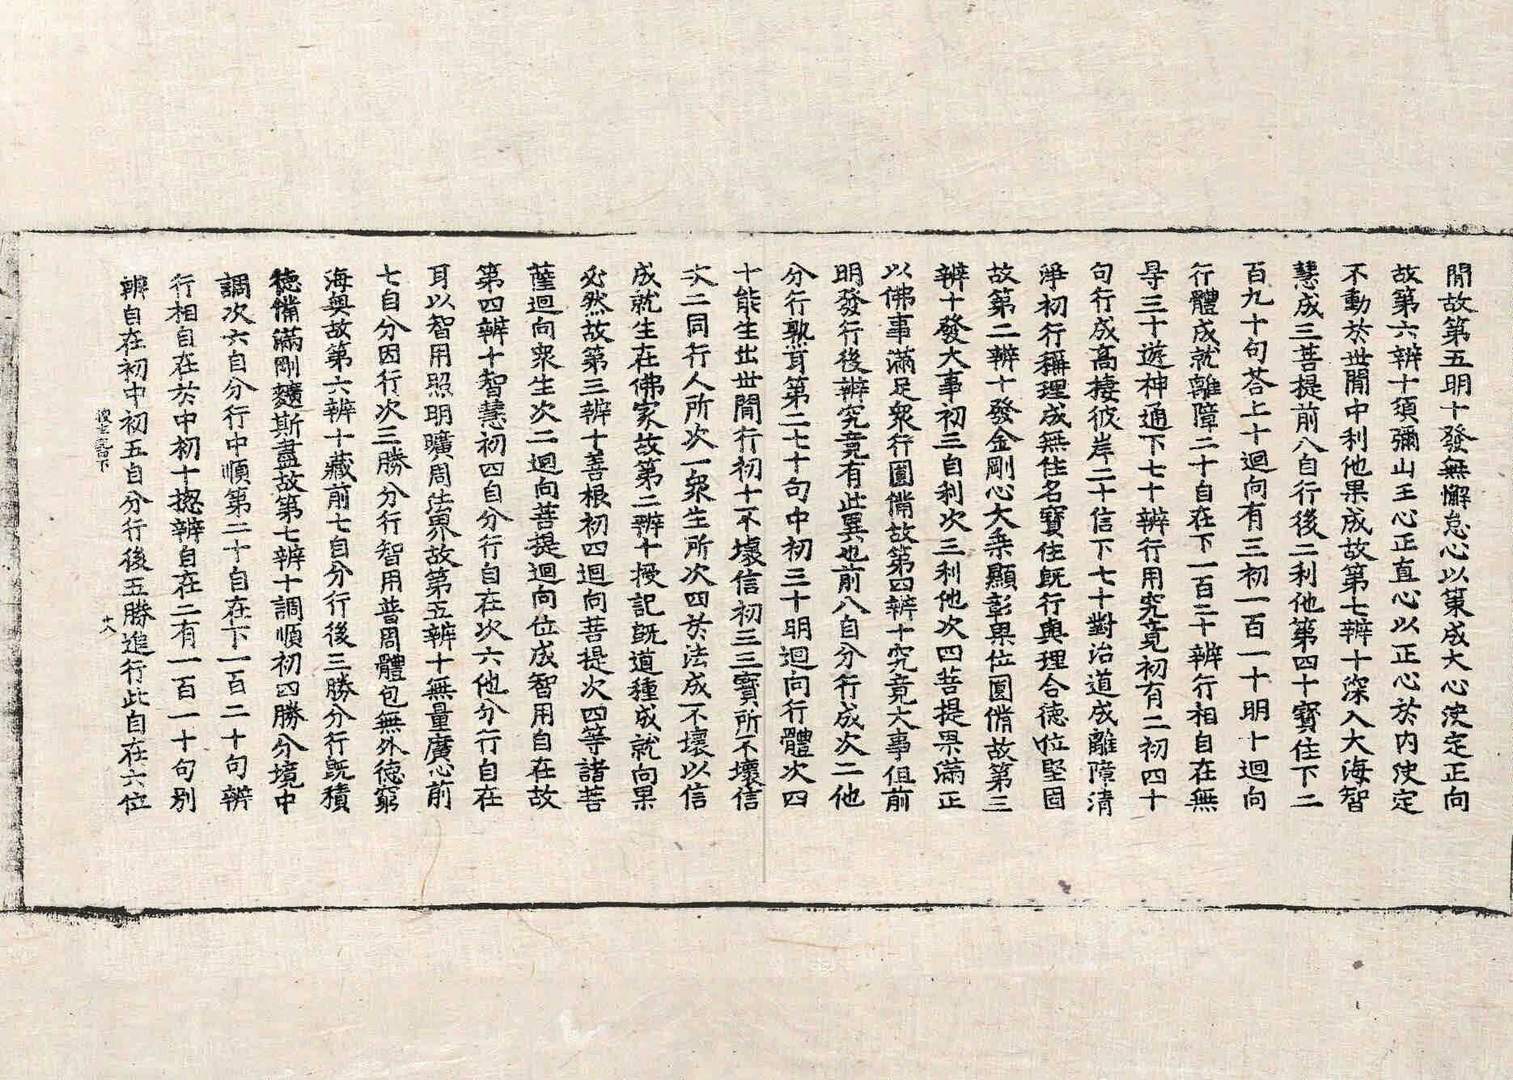 閒故第五明十發無懈怠心以策成大心決定正向
故第六辨十須彌山王心正直心以正心於內決定
不動於世閒中利他果成故第七辨十深入大海智
慧成三菩提前八自行後二利他第四十寶住下二
百九十句荅上十迴向有三初一百一十明十迴向
行體成就離障二十自在下一百二十辨行相自在無
㝵三十遊神通下七十辨行用究竟初有二初四十
句行成高棲彼岸二十信下七十對治道成離障清
淨初行稱理成無住名寶住既行與理合德位堅固
故第二辨十發金剛心大乘顯彰果位圓備故第三
辨十發大事初三自利次三利他次四菩提果滿正
以佛事滿足衆行圓備故第四辨十究竟大事但前
明發行後辨究竟有此異也前八自分行成次二他
分行熟耳第二七十句中初三十明迴向行體次四
十能生出世閒行初十不壞信初三三寶所不壞信
次二同行人所次一衆生所次四於法成不壞以信
成就生在佛家故第二辨十授記既道種成就向果
必然故第三辨十善根初四迴向菩提次四等諸菩
薩迴向衆生次二迴向菩提迴向位成智用自在故
第四辨十智慧初四自分行自在次六他分行自在
耳以智用照明曠周法界故第五辨十無量廣心前
七自分因行次三勝分行智用普周體包無外德窮
海奧故第六辨十藏前七自分行後三勝分行既積
德備滿剛麁斯盡故第七辨十調順初四勝分境中
調次六自分行中順第二十自在下一百二十句辨
行相自在於中初十揔辨自在二有一百一十句別
辨自在初中初五自分行後五勝進行此自在六位
十八